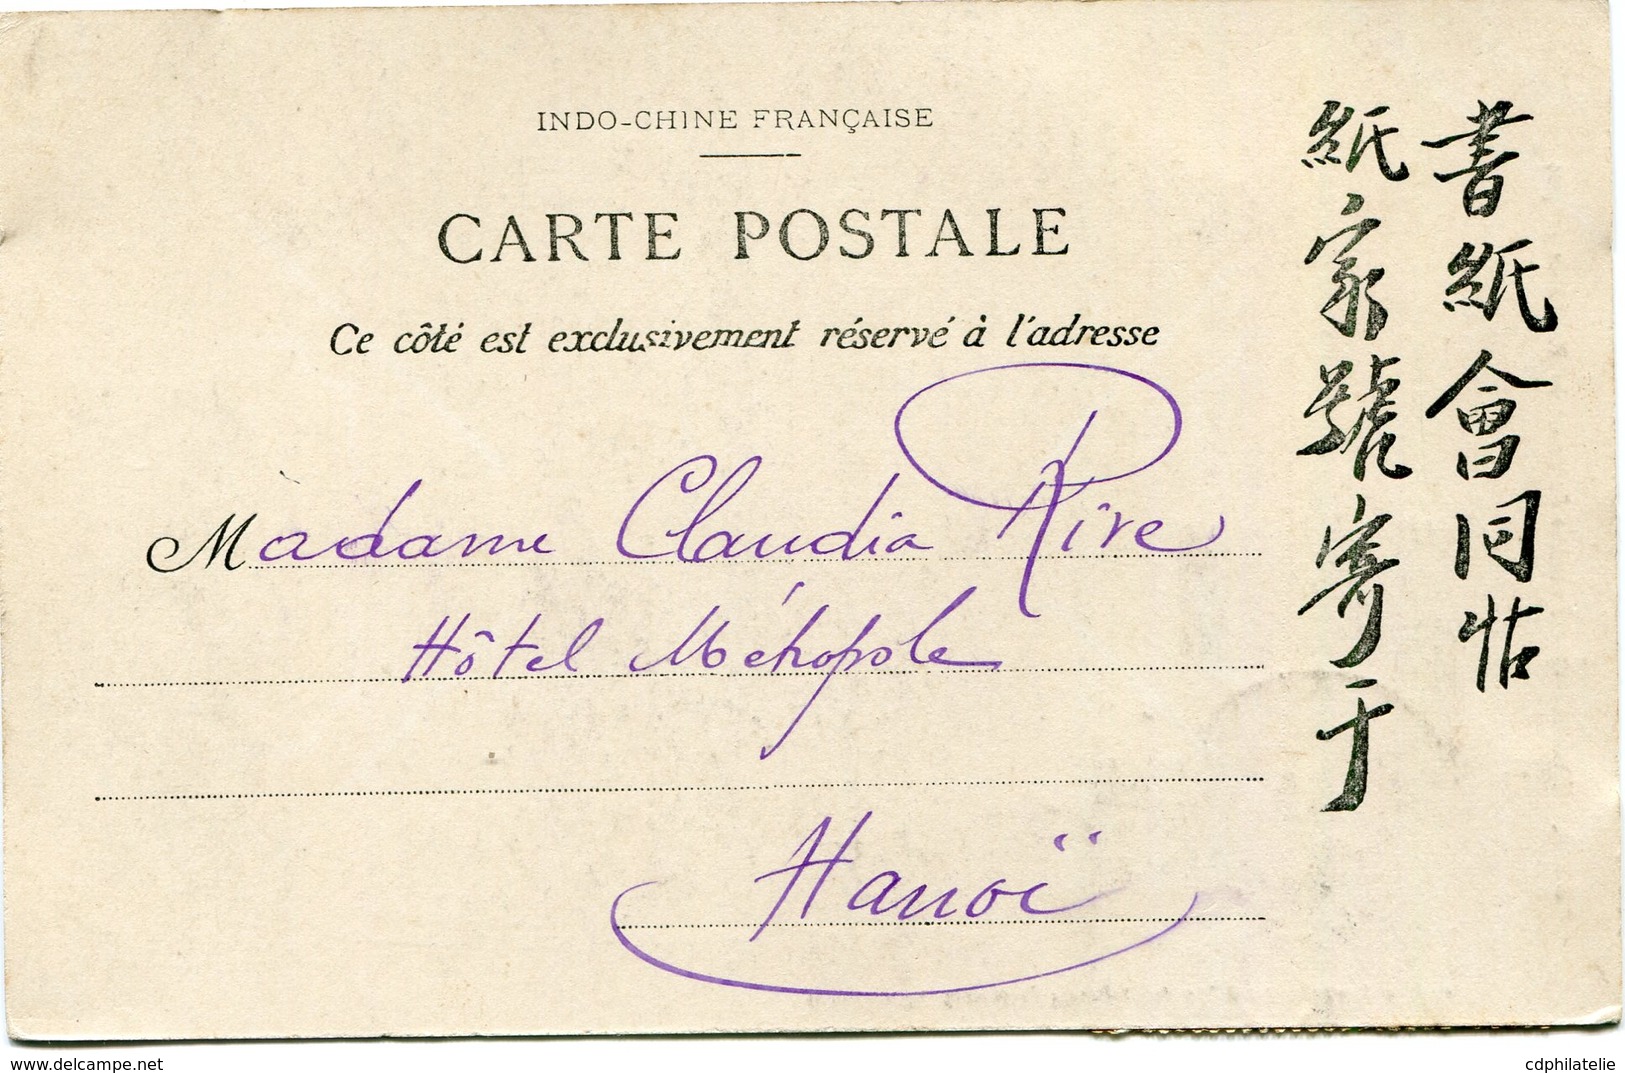 INDO-CHINE FRANÇAISE
CARTE POSTALE
Ce côté est exclusivement réservé à l'adresse
Madame Claudia Rive
Hôtel Métropole
Hanoï
書紙會同帖
紙家號寄于
delcampe.net
cdphilatelie